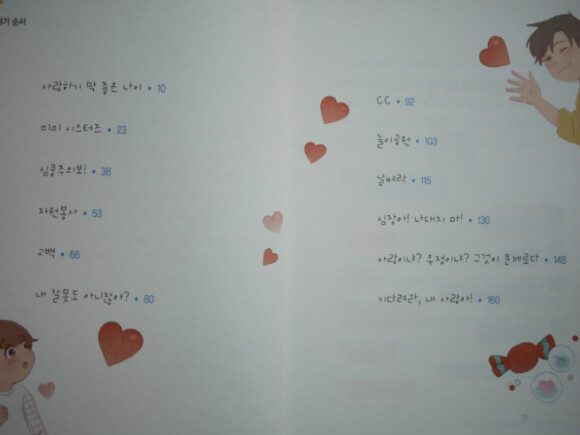 순서
사랑하기 딱 좋은 나이 • 10
미미 시스터즈 • 23
심쿵주의보! • 38
자원봉사 • 53
고백 • 66
내 잘못도 아니잖아? • 80
CC • 92
놀이공원 • 103
날벼락 • 115
심장아! 나대지 마! • 130
사랑이냐? 우정이냐? 그것이 문제로다 • 148
기다려라, 내 사랑아! • 160